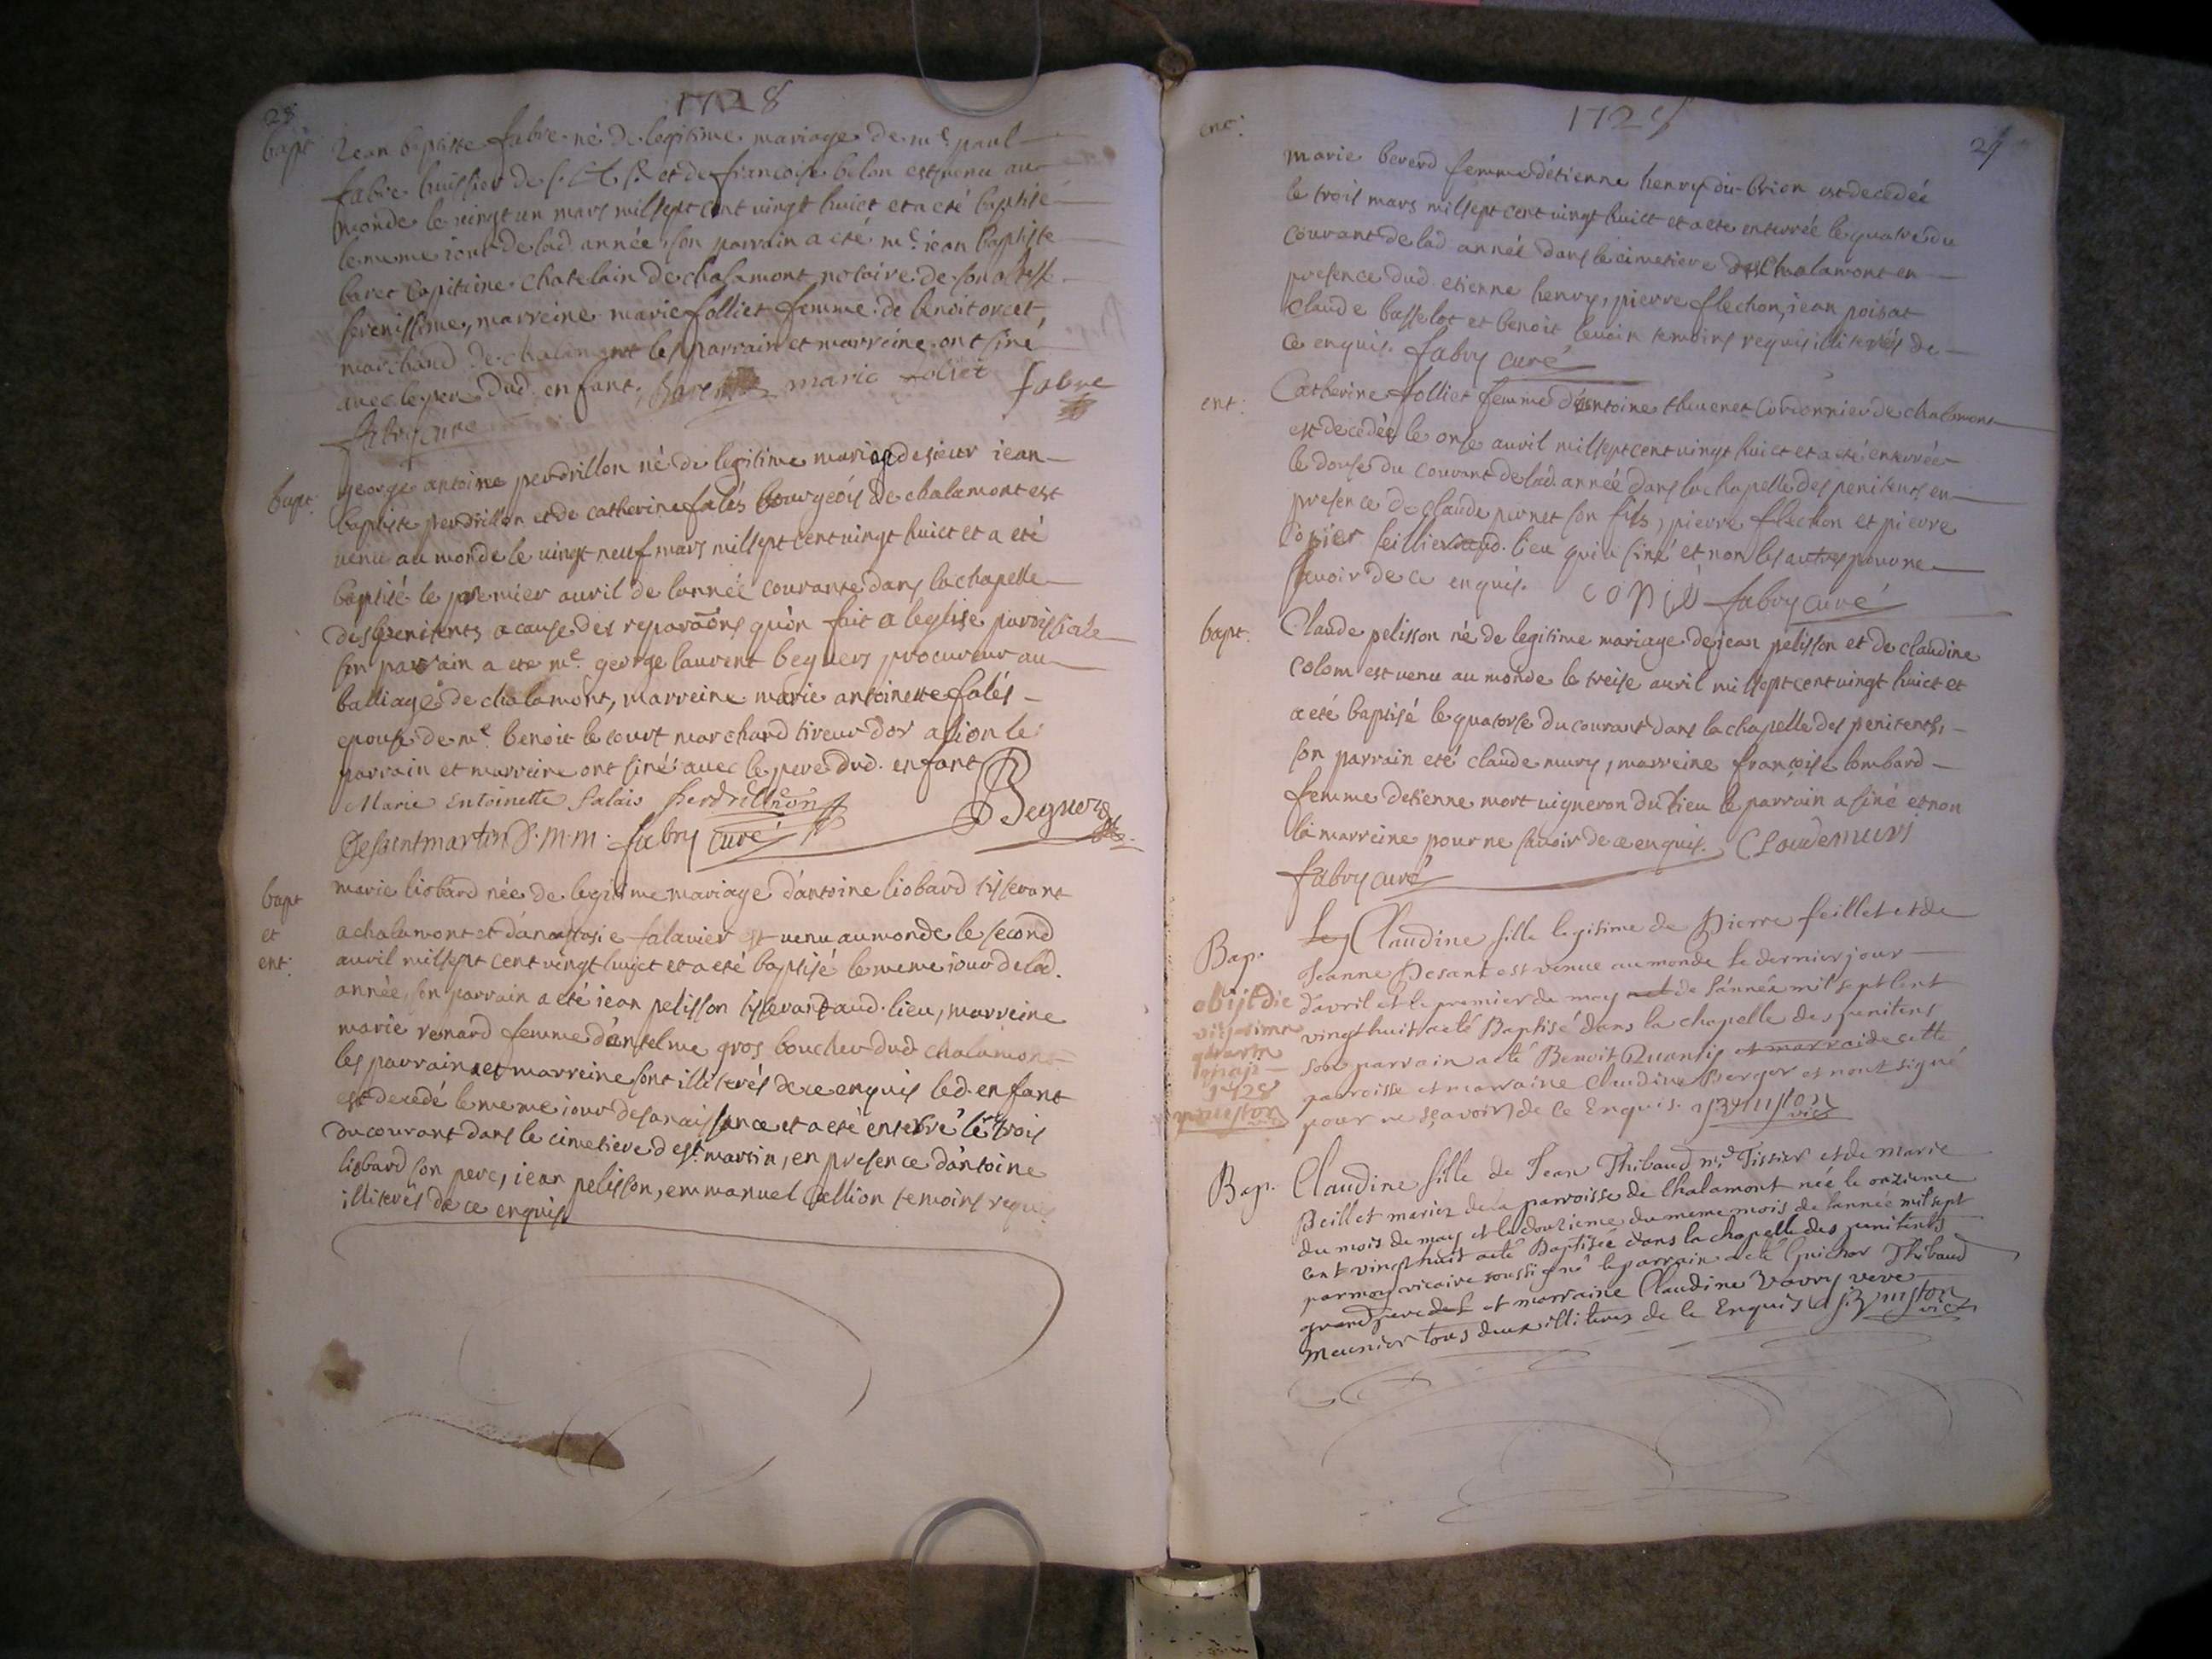 28
1728
bapt
Jean baptiste fabre né de legitime mariage de me. paul
fabre huissier de S.A.S. et de francoise belon est venu au
monde le vingt un mars mil sept cent vingt huict et a eté baptisé
le meme iour de lad année son parrain a eté me. iean baptiste
baret Capitaine Chatelain de chalamont notaire de son altesse
serenissime, marreine marie folliet femme de benoit orcet
marchand de chalamont les parrain et marreine ont siné
avec le pere dud. enfant, Baret marie foliet fabre
fabry curé
bapt:
george antoine perdrillon né de legitime mariage de sieur iean
baptiste perdrillon et de catherine falés bourgeois de chalamont est
venu au monde le vingt neuf mars mil sept cent vingt huict et a eté
baptisé le premier auril de l'année courante dans la chapelle
des penitents a cause des reparãons qu'on fait a leglise paroissiale
son parrain a eté me. george laurent beguers procureur au
balliage de chalamont, marreine marie antoinette falés
epouse de me. benoit le court marchand tireur d'or a lion le
parrain et marreine ont siné avec le pere dud. enfant
Marie Entoinette falais perdrillon Beguerd
Desaintmartin P.m.m. fabry curé
bapt
et
ent:
marie liobard née de legitime mariage d'antoine liobard tisserant
a chalamont et d'anastasie falavier est venu au monde le second
auril mil sept cent vingt huict et a eté baptisé le meme iour de lad.
année, son parrain a eté iean pelisson tisserant aud. lieu, marreine
marie renard femme d'antelme gros boucher dud chalamont
les parrain et marreine sont illiterés de ce enquis led. enfant
est decedé le meme iour de sa naissance et a eté enterré le trois
du courant dans le cimetiere de st. martin, en presence d'antoine
liobard son pere, iean pelisson, emmanuel callion temoins requis
illiterés de ce enquis
1728
29
ent:
marie bererd femme d'étienne henry du brion est decedée
le trois mars mil sept cent vingt huict et a eté enterrée le quatre du
courant de lad année dans le cimetiere de Chalamont en
presence dud. etienne henry, pierre flechon, iean poisat
Claude basselot et benoit levain temoins requis illiterés de
ce enquis. fabry curé
ent:
Catherine folliet femme d'antoine thevenet cordonnier de chalamont
est decedée le onse auril mil sept cent vingt huict et a eté enterrée
le douse du courant de lad. année dans la chapelle des penitents en
presence de claude pernet son fils, pierre flechon et pierre
Copier seillier aud. lieu qui a siné et non les autres pour ne
savoir de ce enquis. fabry curé
bapt:
Claude pelisson né de legitime mariage de jean pelisson et de claudine
Colom est venu au monde le treise auril mil sept cent vingt huict et
a eté baptisé le quatorse du courant dans la chapelle des penitents,
son parrain eté claude mury, marreine françoise lombard
femme detienne mort vigneron du lieu le parrain a siné et non
la marreine pour ne savoir de ce enquis. Claudemuri
fabry curé
Bap.
Claudine fille legitime de Pierre feillet et de
Jeanne Besant est venue au monde le dernier jour
d'avril et le premier de may de l'année mil sept cent
vingt huit a eté Baptisé dans la chapelle des penitens
son parrain a eté Benoit Quantin et marrai de cette
parroisse et marraine Claudine Berger et n'ont signé
pour ne sçavoir de ce Enquis.
obijt die
1728
Bap.
Claudine fille de Jean Thibaud md Tissier et de marie
Beillet mariez de la parroisse de Chalamont née le onzieme
du mois de may et le douzieme du meme mois de l'année mil sept
cent vingt huit a eté Baptisée dans la chapelle des penitents
par moy vicaire soussigné le parrain a eté Guichar Thibaud
grand pere et marraine Claudine Vavry veve
meunier tous deux illiterez de ce Enquis